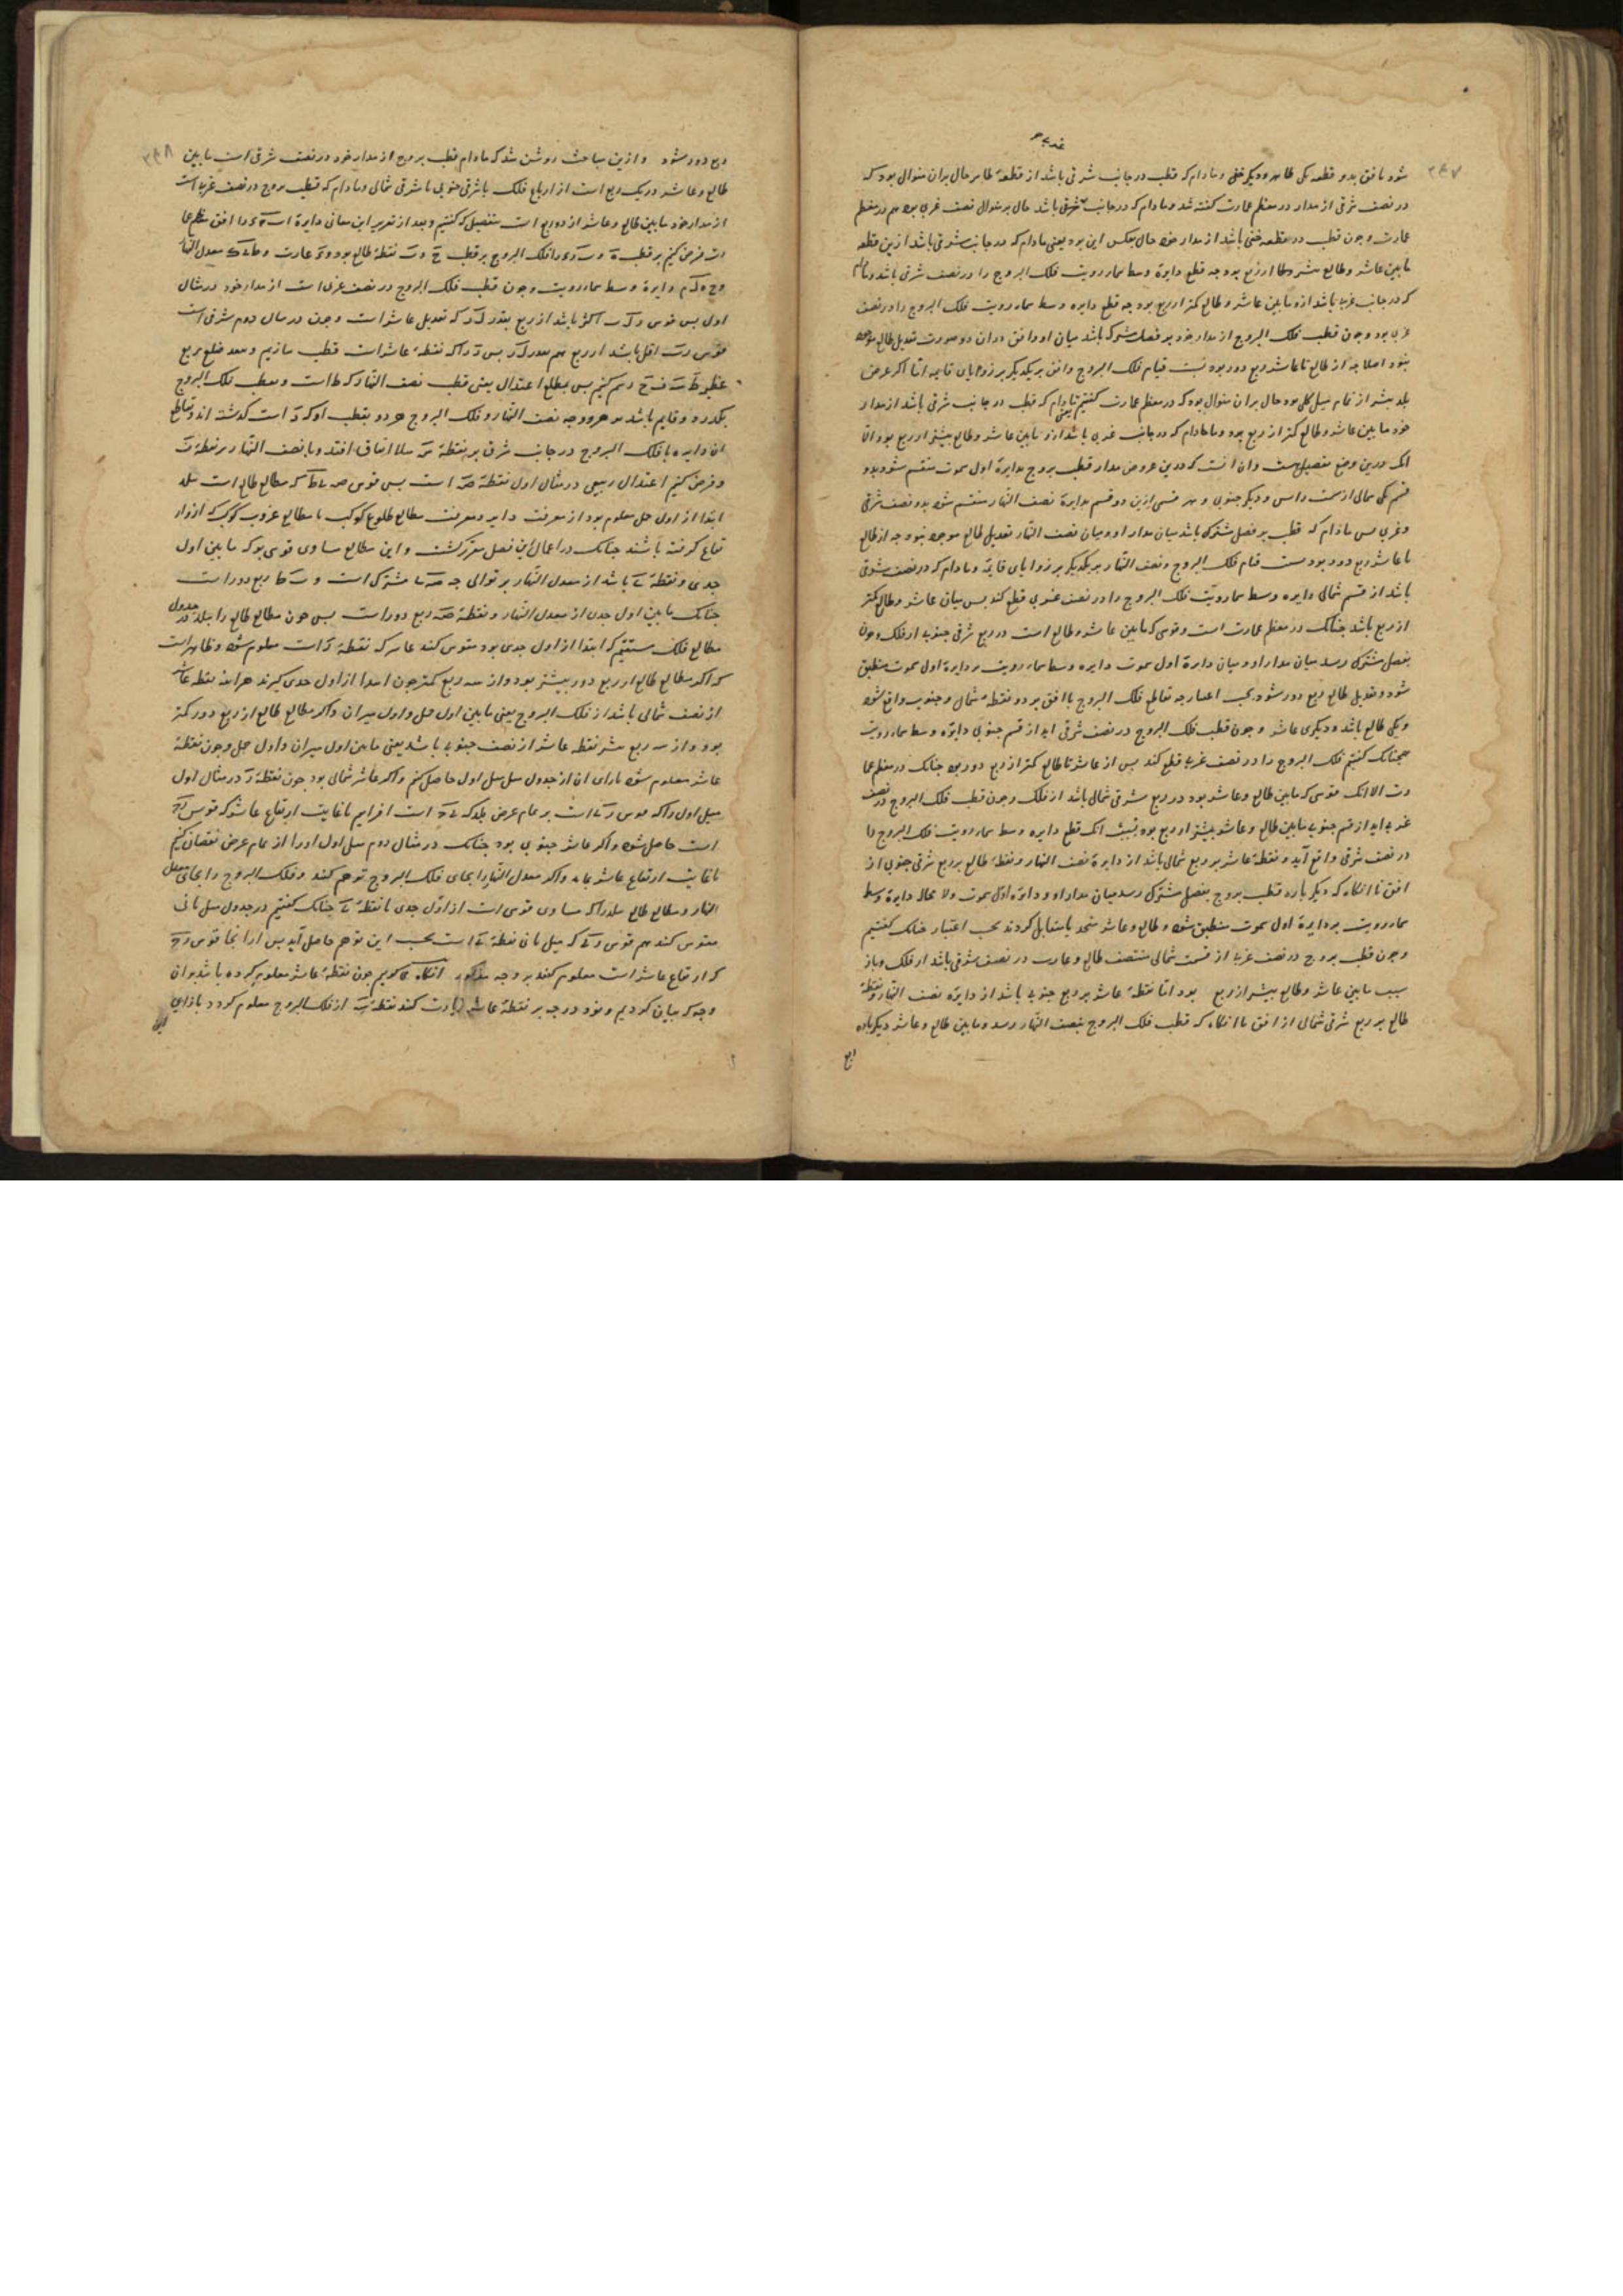 ۲۶۷
شود بافق بدو قطعه یکی ظاهر و دیگر خفی و مادام که قطب در جانب شرقی باشد از قطعهٔ ظاهر حال بران منوال بود که
در نصف شرقی از مدار در معظم عمارت گفته شد و مادام که در جانب غربی باشد حال بر منوال نصف غربی بود هم در معظم
عمارت و چون قطب در قطعه خفی باشد از مدار خود حال بعکس این بود یعنی مادام که در جانب شرقی باشد ازین قطعه
مابین عاشر و طالع بیشتر از ربع بود چه قطع دایرهٔ وسط سماء رویت فلک البروج را در نصف شرقی باشد و مادام
که در جانب غربی باشد ازو مابین عاشر و طالع کمتر از ربع بود چه قطع دایره وسط سماء رویت فلک البروج را در نصف
غربی بود و چون قطب فلک البروج از مدار خود بر فصل مشترک باشد میان او و افق در ان دو صورت تعدیل طالع موجود
نبود اصلا چه از طالع تا عاشر ربع دور بود بسبب قیام فلک البروج و افق بر یکدیگر بر زوایای قایمه اما اگر عرض
بلد بیشتر از تمام میل کلی بود حال بران منوال بود که در معظم عمارت گفتیم یعنی مادام که قطب در جانب شرقی باشد از مدار
خود مابین عاشر و طالع کمتر از ربع بود و مادام که در جانب غربی باشد ازو مابین عاشر و طالع بیشتر از ربع بود الا
انک درین وضع تفصیلی هست وان انست که درین عروض مدار قطب بروج بدایرهٔ اول سموت منقسم شود بدو
قسم یکی شمالی از سمت راس و دیگر جنوبی و هر قسمی ازین دو قسم بدایرهٔ نصف النهار منقسم شود بدو نصف شرقی
و غربی پس مادام که قطب بر فصل مشترک باشد میان مدار او و میان نصف النهار تعدیل طالع موجود نبود چه از طالع
تا عاشر ربع دور بود بسبب قیام فلک البروج و نصف النهار بر یکدیگر بر زوایای قایمه و مادام که در نصف شرقی
باشد از قسم شمالی دایره وسط سماء رویت فلک البروج را در نصف جنوبی قطع کند پس میان عاشر و طالع کمتر
از ربع باشد چنانک در معظم عمارت است و قوسی که مابین عاشر و طالع است در ربع شرقی جنوبی از فلک و چون
بفصل مشترک رسد میان مدار او و میان دایرهٔ اول سموت دایره وسط سماء رویت بر دایرهٔ اول سموت منطبق
شود و تعدیل طالع ربع دور شود بحسب اعتبار چه تقاطع فلک البروج با افق بر دو نقطهٔ شمال و جنوب واقع شود
و یکی طالع باشد و دیگری عاشر و چون قطب فلک البروج در نصف شرقی اید از قسم جنوبی دایره وسط سماء رویت
همچنانک گفتیم فلک البروج را در نصف غربی قطع کند پس از عاشر تا طالع کمتر از ربع دور بود چنانک در معظم عما
رت الا انک قوسی که مابین طالع و عاشر بود در ربع شرقی شمالی باشد از فلک و چون قطب فلک البروج در نصف
غربی اید از قسم جنوبی مابین طالع و عاشر بیشتر از ربع بود بسبب انک قطع دایره وسط سماء رویت فلک البروج را
در نصف شرقی واقع آید و نقطهٔ عاشر بر ربع شمالی باشد از دایرهٔ نصف النهار و نقطهٔ طالع بر ربع شرقی جنوبی از
افق تا انگاه که دیگر باره قطب بروج بفصل مشترک رسد میان مدار او و دایره اول سموت ولا محاله دایرهٔ وسط
سماء رویت بر دایرهٔ اول سموت منطبق شود و طالع و عاشر متحد یا متقابل گردند بحسب اعتبار چنانک گفتیم
و چون قطب بروج در نصف غربی از قسمت شمالی منتصف طالع و عارب در نصف شرقی باشد از فلک و باز
سبب مابین عاشر و طالع بیشتر از ربع بود اما نقطهٔ عاشر بر ربع جنوبی باشد از دایره نصف النهار و نقطهٔ
طالع بر ربع شرقی شمالی از افق تا انگاه که قطب فلک البروج بنصف النهار رسد و مابین طالع و عاشر دیگر باره
ربع
۲۶۸
ربع دور شود و ازین مباحث روشن شد که مادام قطب بروج از مدار خود در نصف شرقی است مابین
طالع و عاشر در یک ربع است از ارباع فلک یا شرقی جنوبی یا شرقی شمالی و مادام که قطب بروج در نصف غربی است
از مدار خود مابین طالع و عاشر از دو ربع است بتفصیل که گفتیم و بعد از تقریر این معانی دایرهٔ را افق معظم عما
رت فرض کنیم بر قطب و فلک البروج بر قطب ح و نقطهٔ طالع بود و عارت و معدل النهار
دایرهٔ وسط سماء رویت و چون قطب فلک البروج در نصف غربی است از مدار خود در مثال
اول پس قوس اکثر باشد از ربع بقدر که تعدیل عاشر است و چون در مثال دوم شرقی است
قوس اقل باشد از ربع هم بقدر پس راکه نقطهٔ عاشر است قطب سازیم و ببعد ضلع مربع
عظیمه رسم کنیم پس بمطلع اعتدال یعنی قطب نصف النهار که ط است و بقطب فلک البروج
بگذرد و قایم باشد بر هر دو چه نصف النهار و فلک البروج هر دو بقطب او که است گذشته اند و تقاطع
ان دایره با فلک البروج در جانب شرق بر نقطهٔ مثلا اتفاق افتد و با نصف النهار بر نقطهٔ
و فرض کنیم اعتدال ربیعی در مثال اول نقطهٔ است پس قوس که مطالع طالع است ببلد
ابتدا از اول حمل معلوم بود از معرفت دایر و معرفت مطالع طلوع کوکب یا مطالع غروب کوکب که ازو ار
تفاع گرفته باشند چنانک در اعمال این فصل مقرر گشت و این مطالع مساوی قوسی بود که مابین اول
جدی و نقطهٔ باشد از معدل النهار بر توالی چه مشترک است و ربع دور است
چنانک مابین اول جدی از معدل النهار و نقطهٔ ربع دور است پس چون مطالع طالع را ببلد در جدول
مطالع فلک مستقیم که ابتدا از اول جدی بود مقوس کنند عاشر که نقطهٔ است معلوم شود و ظاهر است
که اگر مطالع طالع از ربع دور بیشتر بود و از سه ربع کمتر چون ابتدا از اول جدی گیرند هراینه نقطه عاشر
از نصف شمالی باشد از فلک البروج یعنی مابین اول حمل و اول میزان و اگر مطالع طالع از ربع دور کمتر
بود و از سه ربع بیشتر نقطه عاشر از نصف جنوبی باشد یعنی مابین اول میزان و اول حمل و چون نقطهٔ
عاشر معلوم شود بازای ان از جدول میل میل اول حاصل کنم و اگر عاشر شمالی بود چون نقطهٔ در مثال اول
میل اول راکه قوس است بر تمام عرض بلد که است افزایم تا غایت ارتفاع عاشر که قوس
است حاصل شود و اگر عاشر جنوبی بود چنانک در مثال دوم میل اول اورا از تمام عرض نقصان کنیم
تا غایت ارتفاع عاشر بماند و اگر معدل النهار را بجای فلک البروج توهم کنند و فلک البروج را بجای معدل
النهار و مطالع طالع ببلد راکه مساوی قوسی است از اول جدی تا نقطهٔ چنانک گفتیم در جدول میل ثانی
مقوس کنند هم قوس که میل ثانی نقطهٔ است بحسب این توهم حاصل آید پس ازانجا قوس
که ارتفاع عاشر است معلوم کنند بر وجه مذکور انگاه گوییم چون نقطهٔ عاشر معلوم کرده باشد بران
وجه که بیان کردیم و نود درجه بر نقطهٔ عاشر زیادت کنند نقطهٔ از فلک البروج معلوم گردد بازای